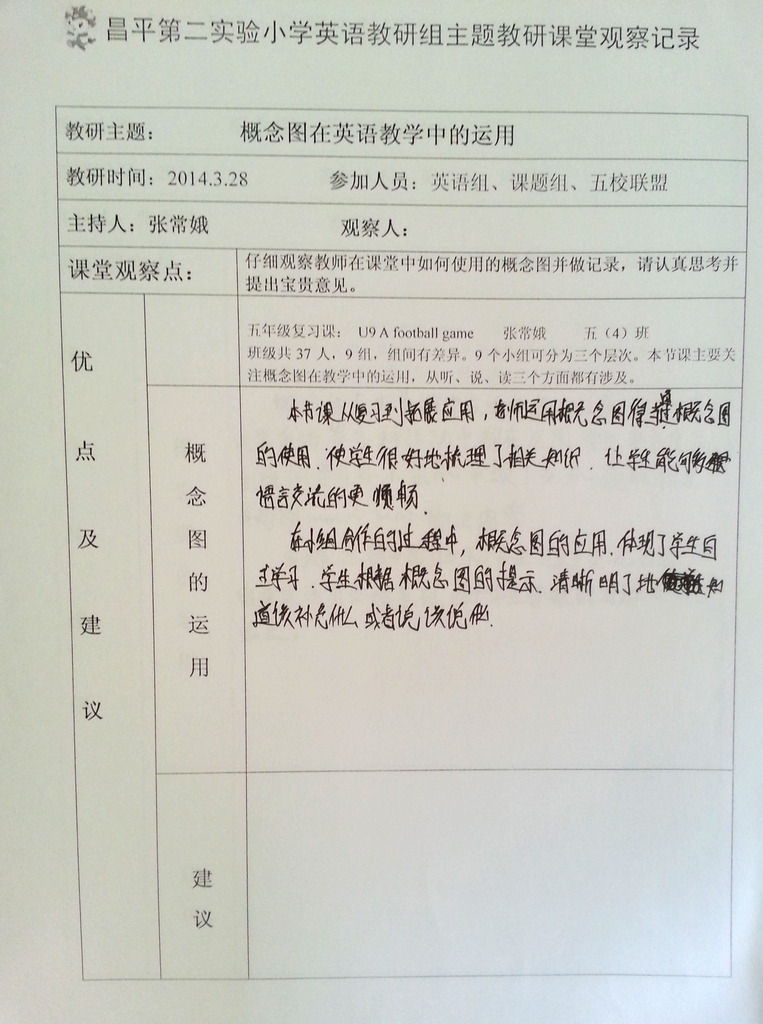 昌平第二实验小学英语教研组主题教研课堂观察记录
教研主题： 概念图在英语教学中的运用
教研时间：2014.3.28 参加人员：英语组、课题组、五校联盟
主持人：张常娥 观察人：
课堂观察点： 仔细观察教师在课堂中如何使用的概念图并做记录，请认真思考并
提出宝贵意见。
优点及建议
五年级复习课： U9 A football game 张常娥 五（4）班
班级共 37 人，9 组，组间有差异。9 个小组可分为三个层次。本节课主要关
注概念图在教学中的运用，从听、说、读三个方面都有涉及。
概念图的运用
本节课从复习到拓展应用，教师运用概念图 概念图
的使用，使学生很好地梳理了相关知识，让学生能
语言交流的更顺畅.
在小组合作的过程中，概念图的应用，体现了学生自
主学习，学生根据概念图的提示，清晰明了地 知
道该补充什么或者说该说什么.
建议